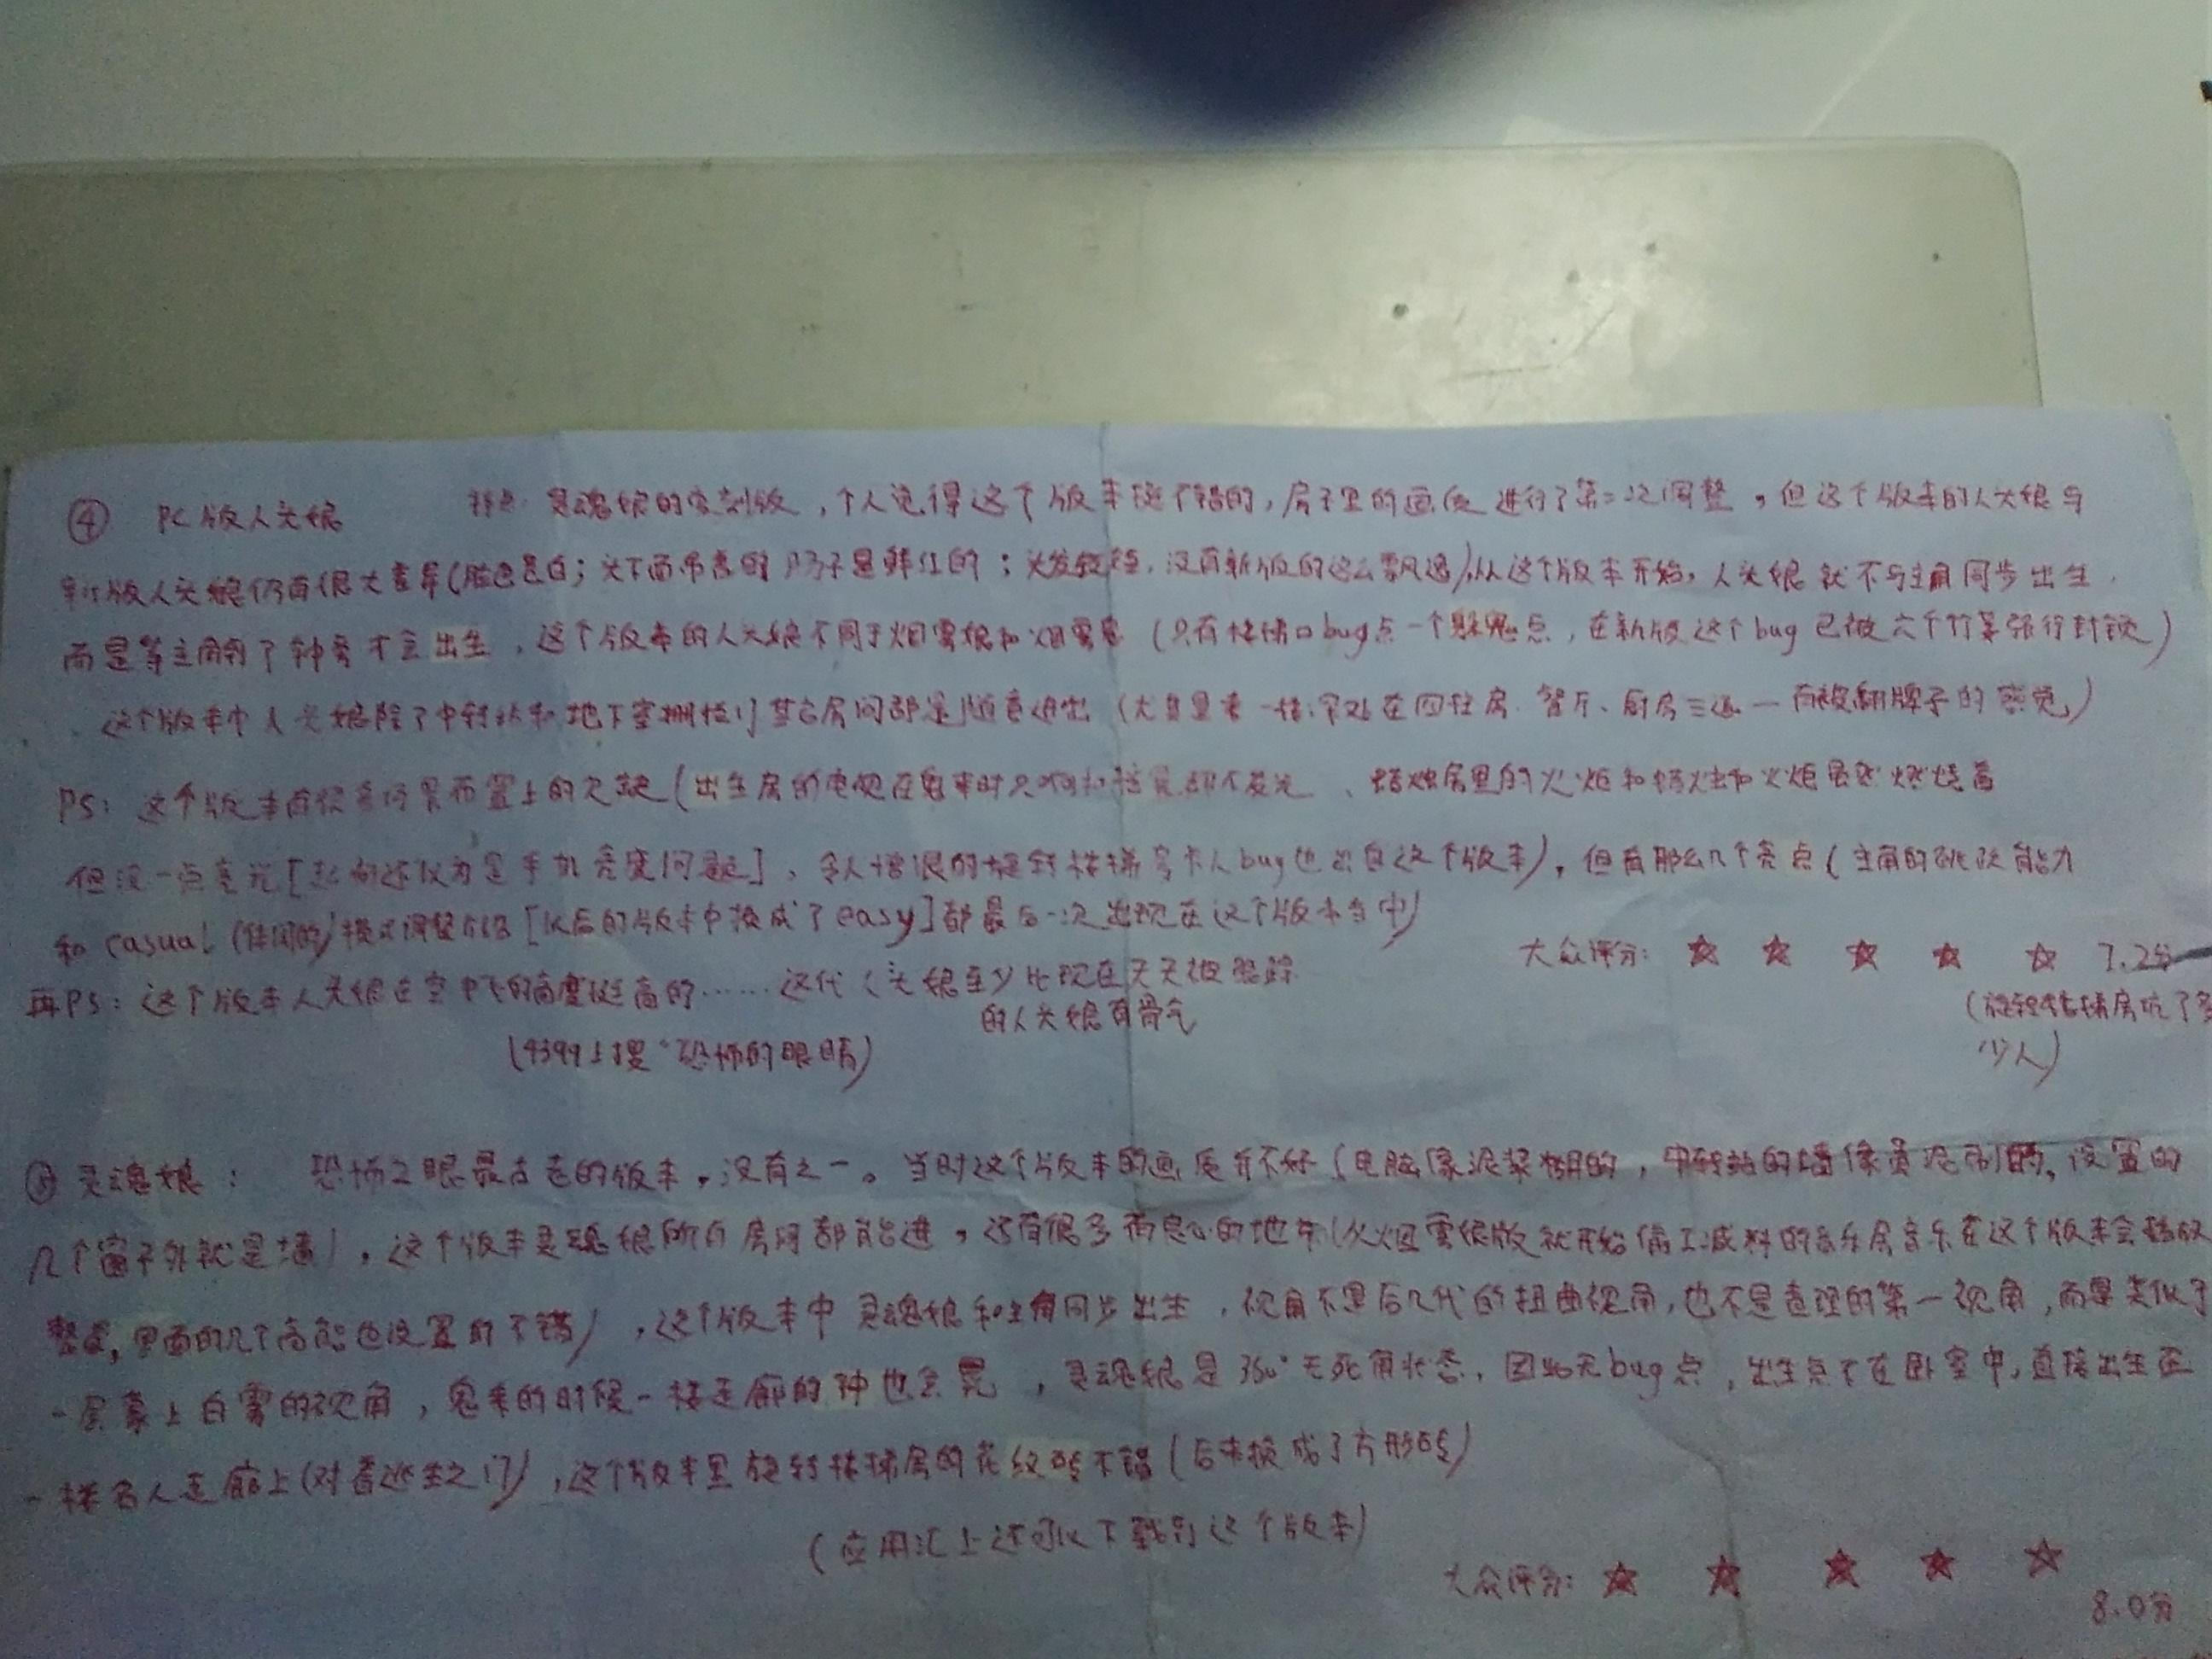 ④ PC版人头娘 灵魂娘的复刻版，个人觉得这个版本挺不错的，房子里的画质进行了第二次调整，但这个版本的人头娘与
新版人头娘仍有很大差异(脸色是白；头下面吊着的肠子是鲜红的；头发较短，没有新版的这么飘逸),从这个版本开始，人头娘就不与主角同步出生，
而是等主角到了钟旁才会出生，这个版本的人头娘不同于烟雾娘和烟雾鬼(只有楼梯口bug点一个躲鬼点，在新版这个bug已被六个竹竿强行封锁)
这个版本中人头娘除了中转站和地下室栅栏门其它房间都是随意进出(尤其是一楼，四柱房、餐厅、厨房三选一有被翻牌子的感觉)
PS：这个版本有很多场景布置上的欠缺(出生房的电视在鬼来时、蜡烛房里的火炬和蜡烛和火炬虽然燃烧着
但没一点亮光[起初还以为是手机亮度问题]，令人憎恨的旋转楼梯旁卡人bug也出自这个版本)，但有那么几个亮点(主角的跳跃能力
和casual(休闲的)模式[以后的版本中换成了easy]都最后一次出现在这个版本当中)
大众评分：☆ ☆ ☆ ☆ ☆ 7.2分
再PS：这个版本人头娘在空中飞的高度挺高的……这代人头娘至少比现在天天被跟踪
的人头娘有骨气
(旋转楼梯房坑了多
少人)
(4399上搜“恐怖的眼睛)
灵魂娘： 恐怖之眼最古老的版本，没有之一。当时这个版本的画质并不好(电脑像泥浆糊的，中转站的墙像黄泥刷的，设置的
几个窗子外就是墙)，这个版本灵魂娘所有房间都能进，还有很多有良心的地方(从烟雾娘版就开始偷工减料的音乐房音乐在这个版本会播放
整首，里面的几个高能也设置的不错)，这个版本中灵魂娘和主角同步出生，视角不是后几代的扭曲视角，也不是真理的第一视角，而是类似于
一层蒙上白雾的视角，鬼来的时候一楼走廊的钟也会晃，灵魂娘是360°无死角状态，因此无bug点，出生点不在卧室中，直接出生在
一楼名人走廊上(对着逃生之门)，这个版本里旋转楼梯房的花纹砖不错(后来换成了方形砖)
(应用汇上还可以下载到这个版本)
大众评分：☆ ☆ ☆ ☆ ☆
8.0分